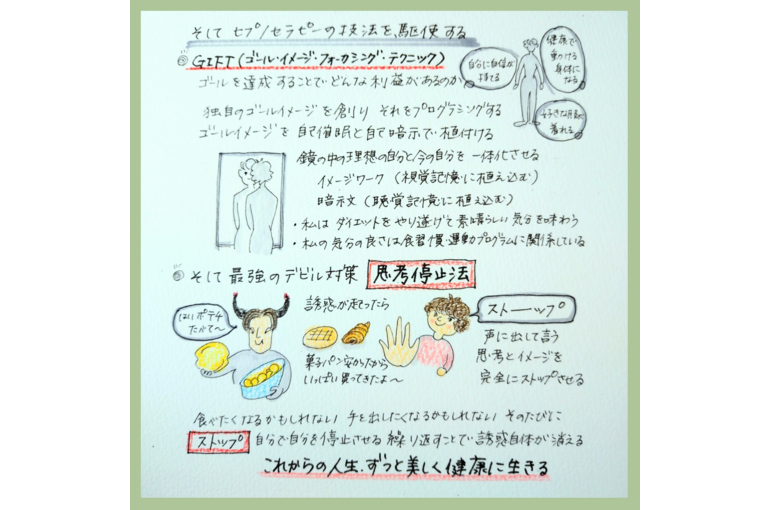 そして セラノセラピーの技法を、駆使する
◎ GIFT（ゴール・イメージ・フォーカシング・テクニック）
ゴールを達成することでどんな利益があるのか
自分に自信が
持てる
健康で
動ける
身体に
なる
好きな服
着れる
独自のゴールイメージを創り それをプログラミングする
ゴールイメージを 自己催眠と自己暗示で植付ける
鏡の中の理想の自分と今の自分を 一体化させる
イメージワーク（視覚記憶に植え込む）
暗示文（聴覚記憶に植え込む）
・私は ダイエットをやり遂げて素晴らしい気分を味わう
・私の気分の良さは食習慣・運動プログラムに関係している
◎ そして 最強のデビル対策 思考停止法
はいポテチ
たべて〜
誘惑が走ったら
菓子パン安かったから
いっぱい買ってきたよ〜
ストーップ
声に出して言う
思考とイメージを
完全にストップさせる
食べたくなるかもしれない 手を出したくなるかもしれない そのたびに
ストップ 自分で自分を停止させる 繰り返すことで誘惑自体が消える
これからの人生、ずっと美しく健康に生きる